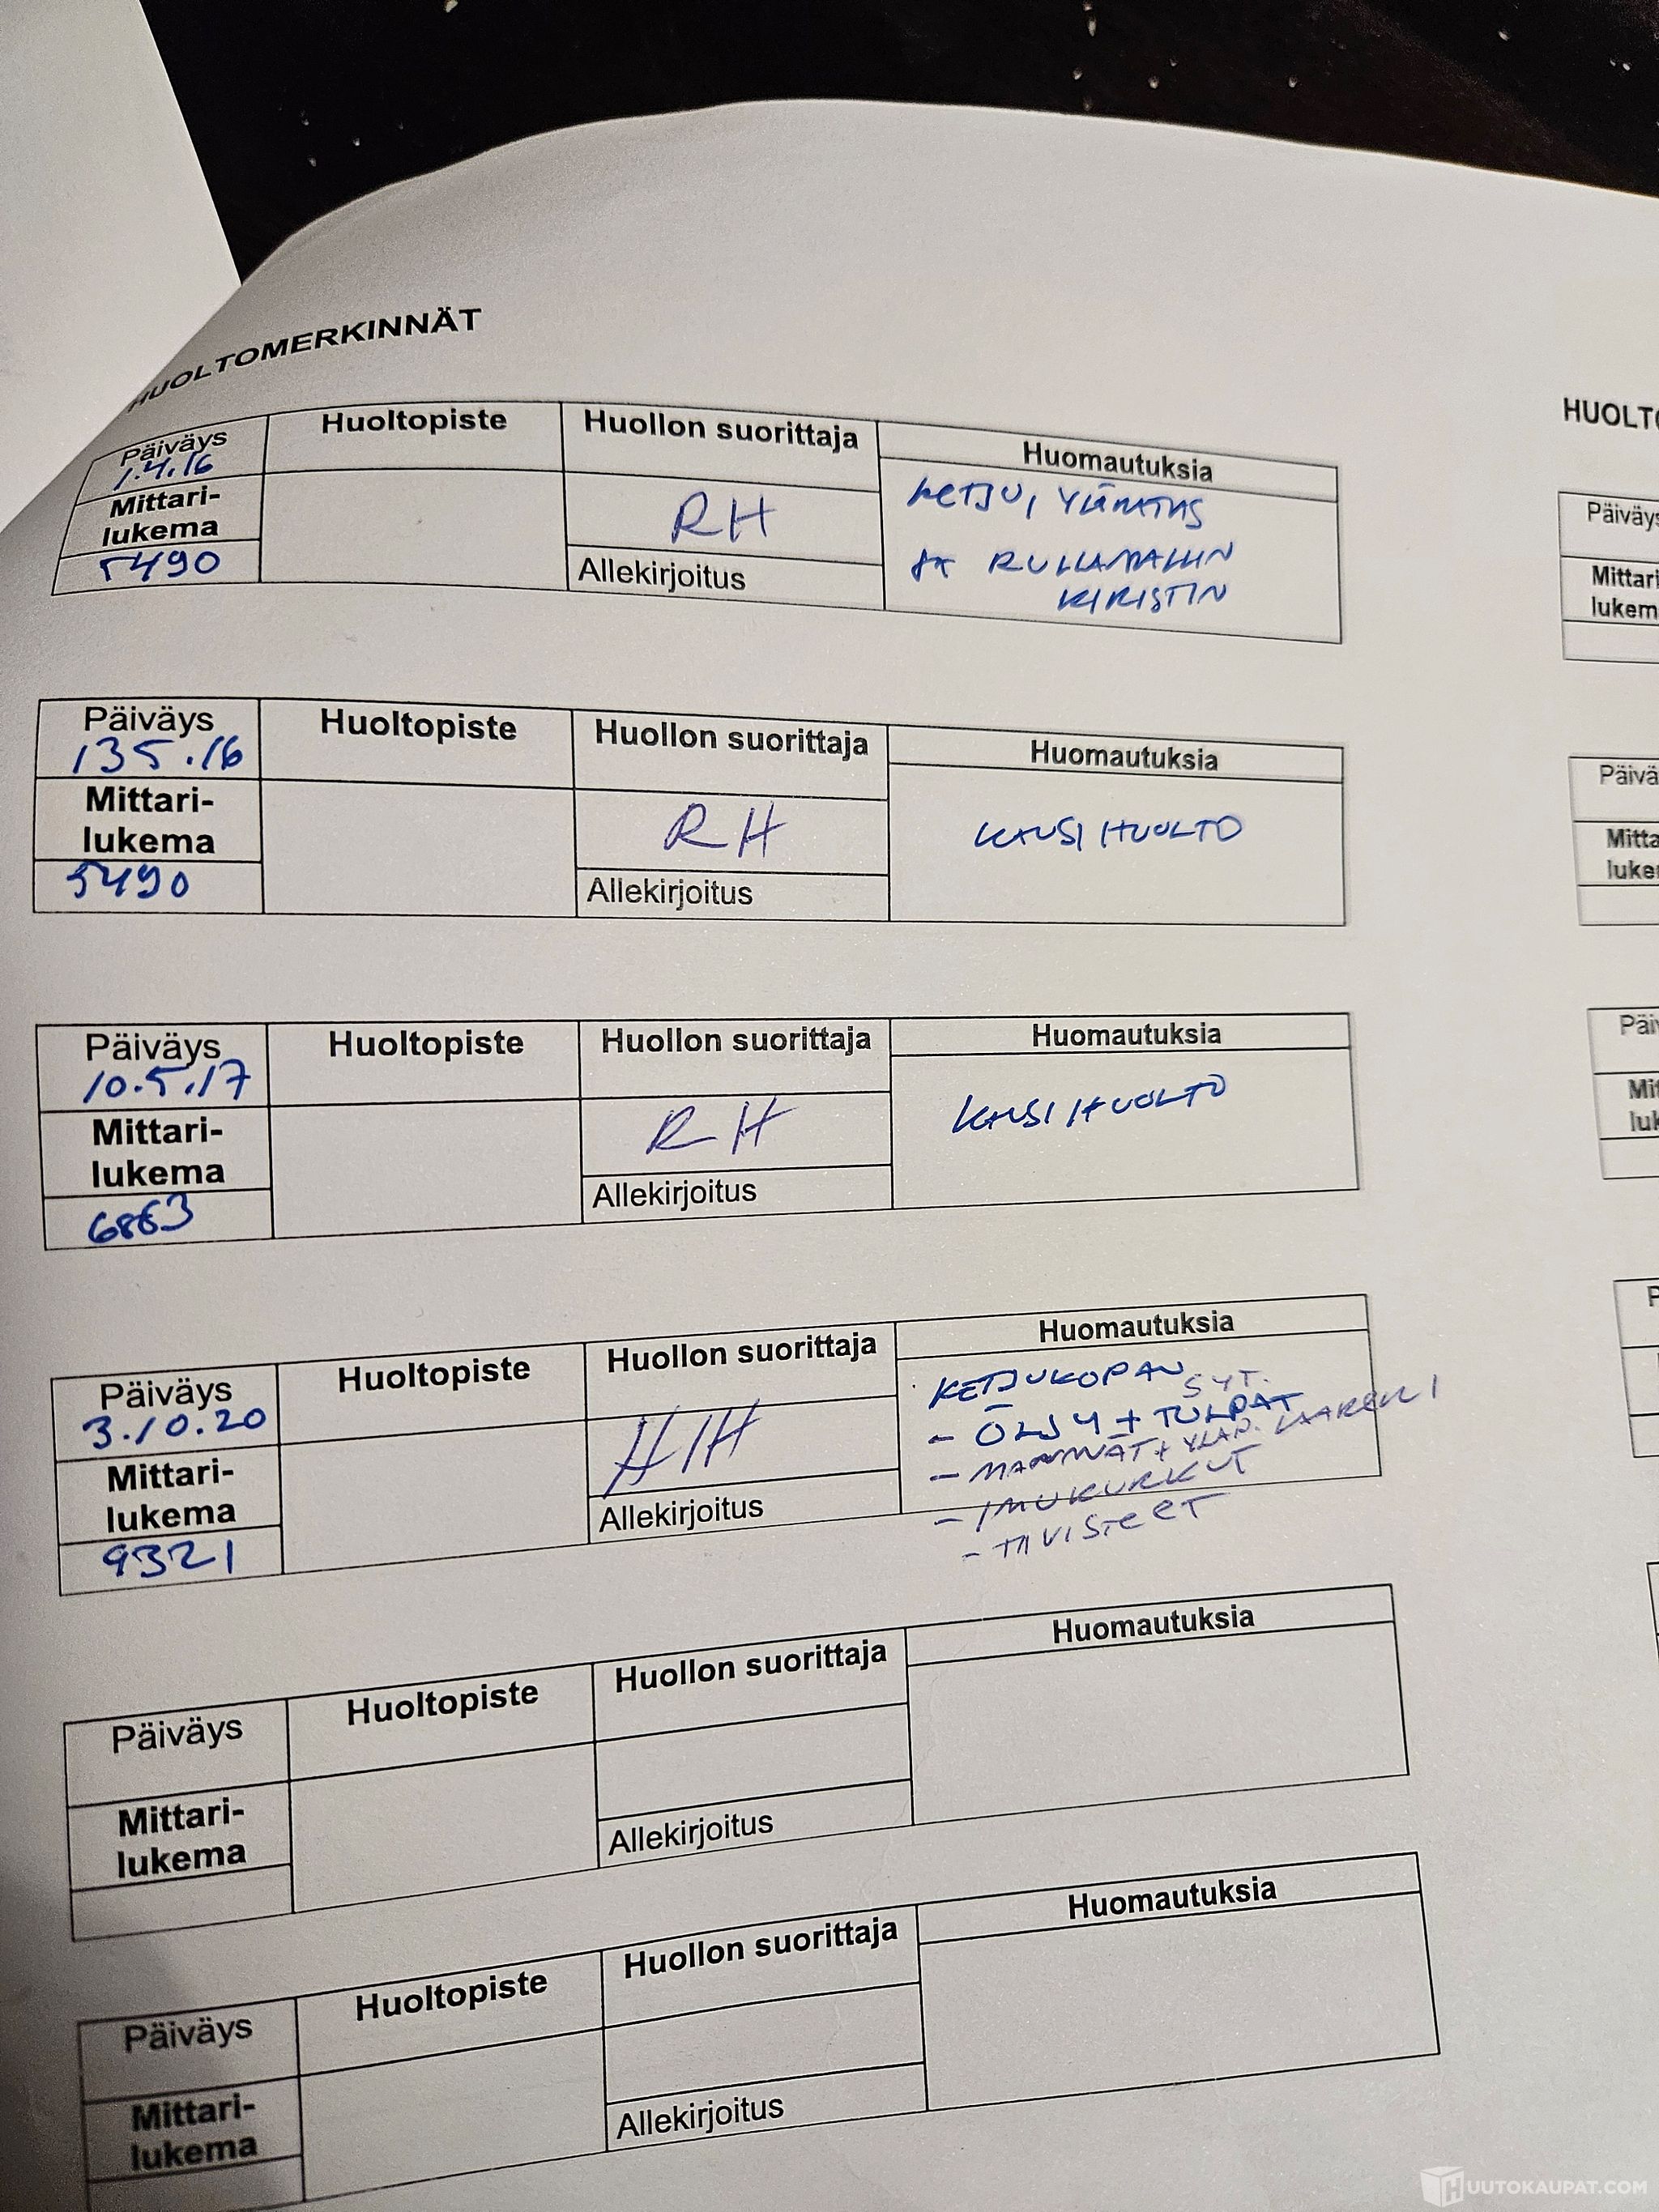 HUOLTOMERKINNÄT
Päiväys
1.4.16
Mittari-
lukema
5490
Huoltopiste
Huollon suorittaja
RH
Allekirjoitus
Huomautuksia
KETJU, YLÄRATAS
RULLAMALLIN
KIRISTIN
Päiväys
135.16
Mittari-
lukema
5490
Huoltopiste
Huollon suorittaja
RH
Allekirjoitus
Huomautuksia
KAUSI HUOLTO
Päiväys
10.5.17
Mittari-
lukema
6863
Huoltopiste
Huollon suorittaja
RH
Allekirjoitus
Huomautuksia
KAUSI HUOLTO
Päiväys
3.10.20
Mittari-
lukema
9321
Huoltopiste
Huollon suorittaja
HIH
Allekirjoitus
Huomautuksia
KETJUKOPAN
SYT.
- ÖLJY + TULPAT
- MÄNNÄT + YLÄP. LAAKERI
- IMUKURKUT
- TIIVISTEET
Päiväys
Mittari-
lukema
Huoltopiste
Huollon suorittaja
Allekirjoitus
Huomautuksia
Päiväys
Mittari-
lukema
Huoltopiste
Huollon suorittaja
Allekirjoitus
Huomautuksia
HUOLTO
Päiväys
Mittari
lukem
Päivä
Mitta
luke
Päi
Mit
luk
P
HUUTOKAUPAT.COM